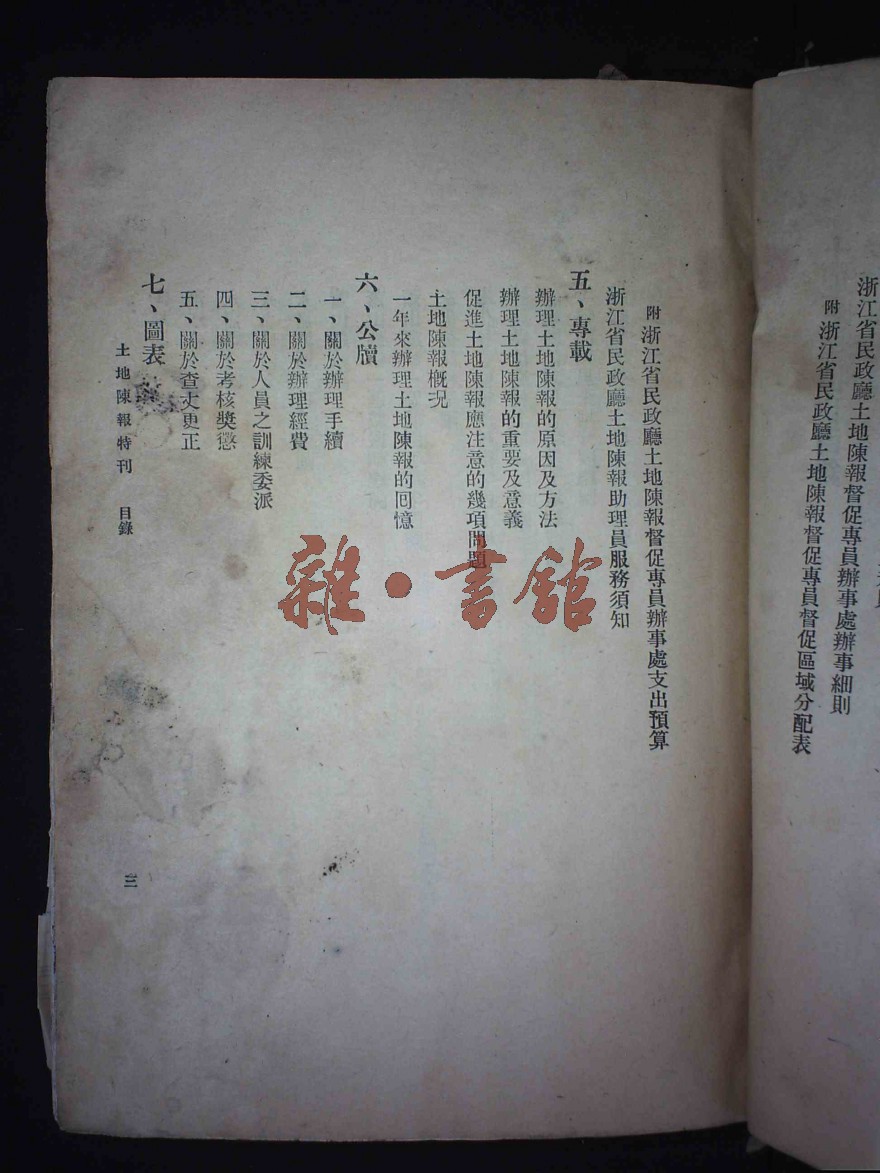 浙江省民政廳土地陳報督促專員辦事處辦事細則
附 浙江省民政廳土地陳報督促專員督促區域分配表
附 浙江省民政廳土地陳報督促專員辦事處支出預算
浙江省民政廳土地陳報助理員服務須知
五、專載
辦理土地陳報的原因及方法
辦理土地陳報的重要及意義
促進土地陳報應注意的幾項問題
土地陳報概況
一年來辦理土地陳報的回憶
六、公牘
一、關於辦理手續
二、關於辦理經費
三、關於人員之訓練委派
四、關於考核獎懲
五、關於查丈更正
七、圖表
土地陳報特刊 目錄
三
雜·書館